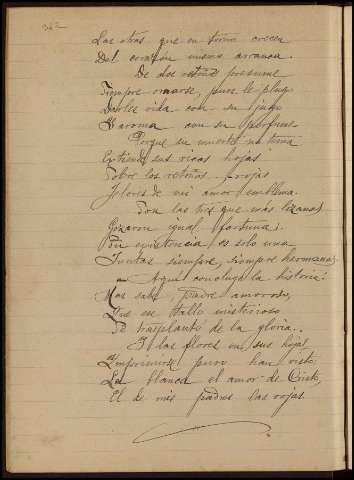 362
Las otras que en torno crecen
Del corazón mismo arranca.
De dos retoños presume
Siempre ornarse, pues le plugo
Darles vida con su jugo
Y aroma con su perfume
Porque su muerte no tema
Extiende sus ricas hojas
Sobre los retoños rojas
Flores de mi amor emblema.
Son las tres que más lozanas
Gozaron igual fortuna:
Su existencia es solo una
Juntas siempre, siempre hermanas
Aquí concluye la historia:
Mas sabe padre amoroso,
Que su tallo misterioso
Se trasplantó de la gloria..
I las flores en sus hojas
Imprimieron puro han visto:
La blanca el amor de Cristo,
El de mis padres las rojas